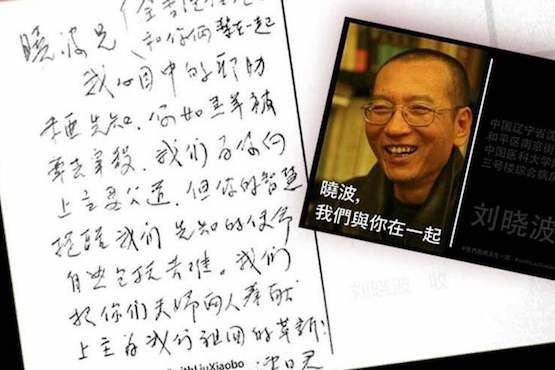 曉波兄
和你俩在一起
我心目中的耶肋
米亚先知,你如羔羊被
牽去宰殺,我们为你向
上主要公道,但你的智慧
提醒我们先知的使命
自然包括苦难。我们
把你们夫婦两人奉献
上主为我们祖国的革新!
ithLiuXiaobo
曉波,
我們與你在一起
中国辽宁省
和平区南京街
中国医科大学
三号楼综合病房
刘晓波
刘晓波 收